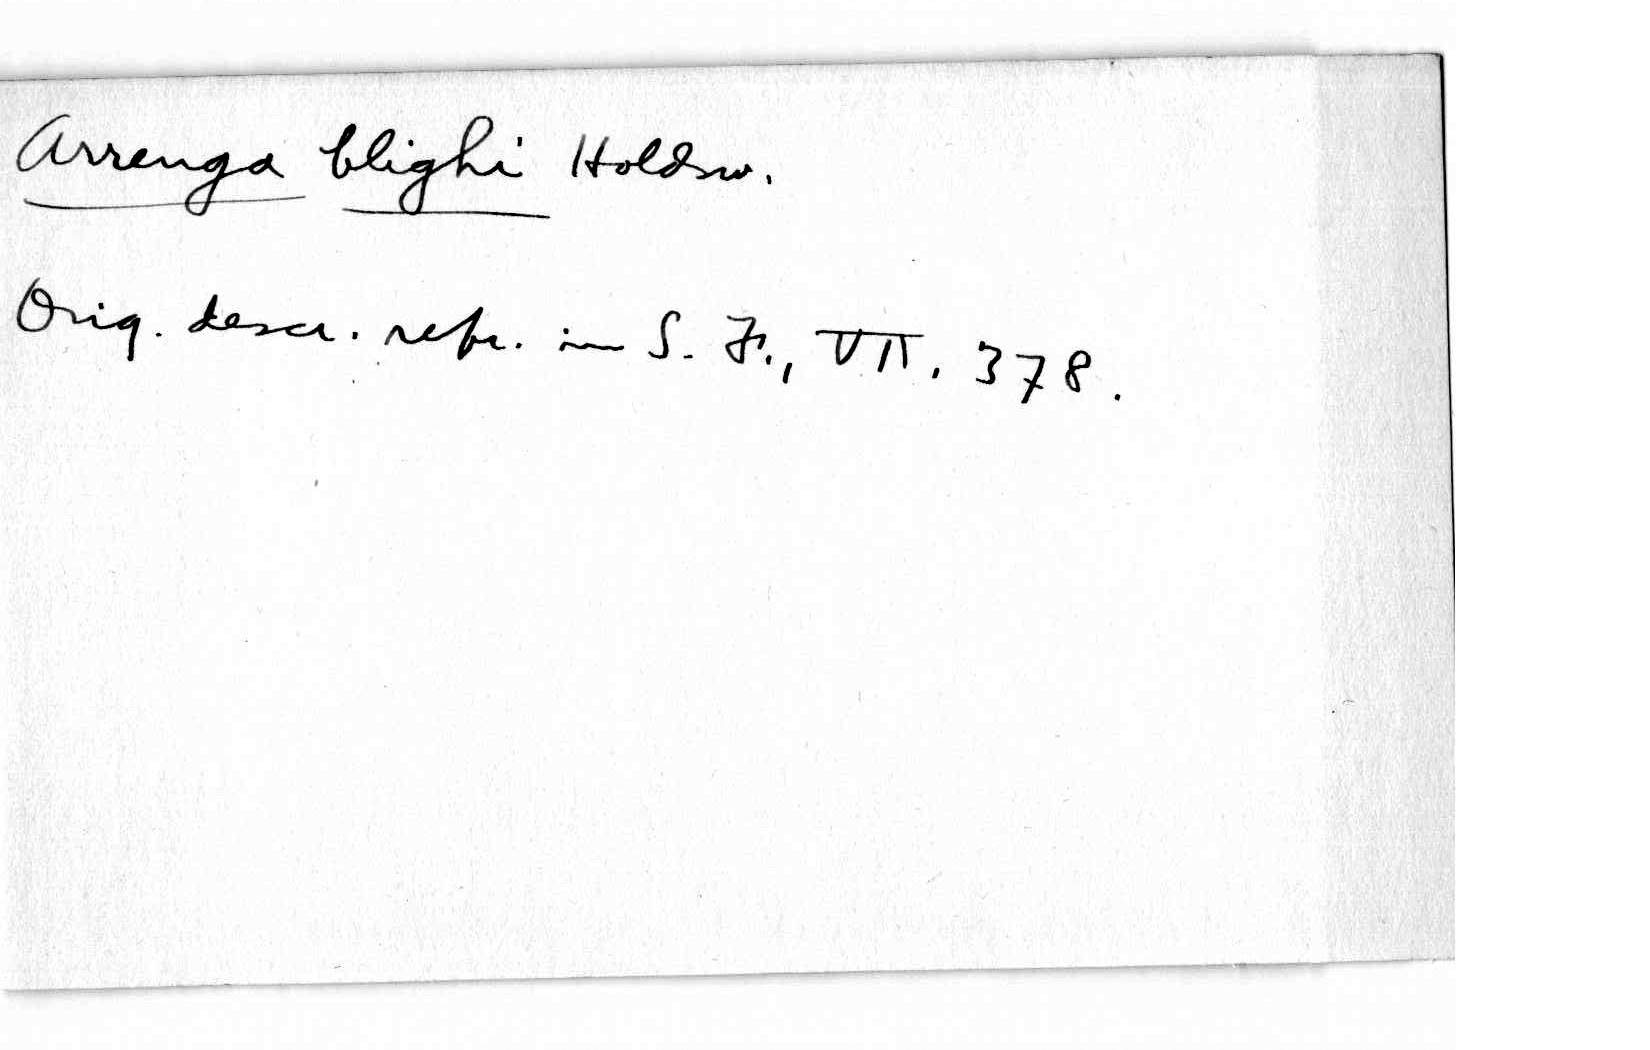 Arrenga blighi Holdsw.
Orig. descr. repr. in S. F., VII. 378.